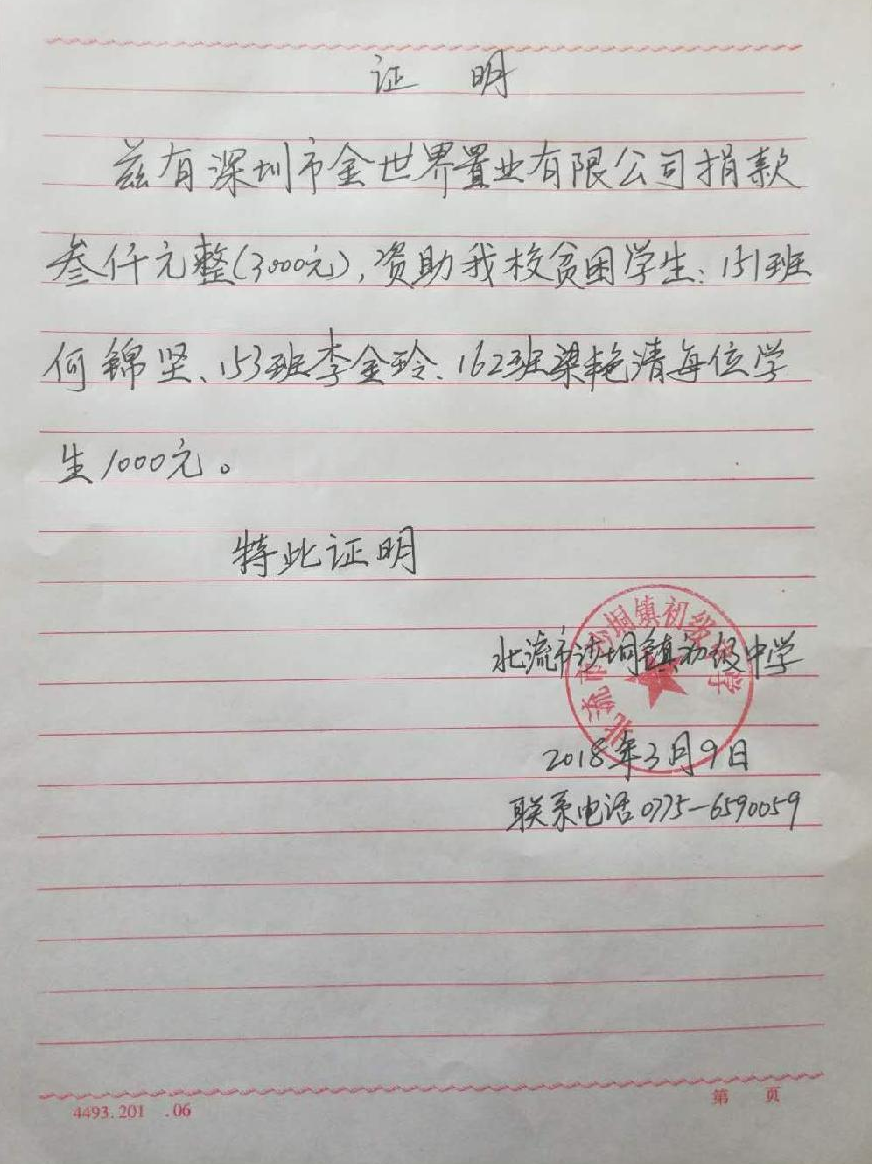 证 明
兹有深圳市金世界置业有限公司捐款
叁仟元整(3000元),资助我校贫困学生:151班
何锦坚、153班李金玲、162班梁艳清每位学
生1000元。
特此证明
北流市沙垌镇初级中学
北流市沙垌镇初级中学
2018年3月9日
联系电话0775-6590059
4493.201 .06
第 页